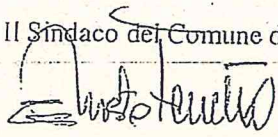 Il Sindaco del Comune d